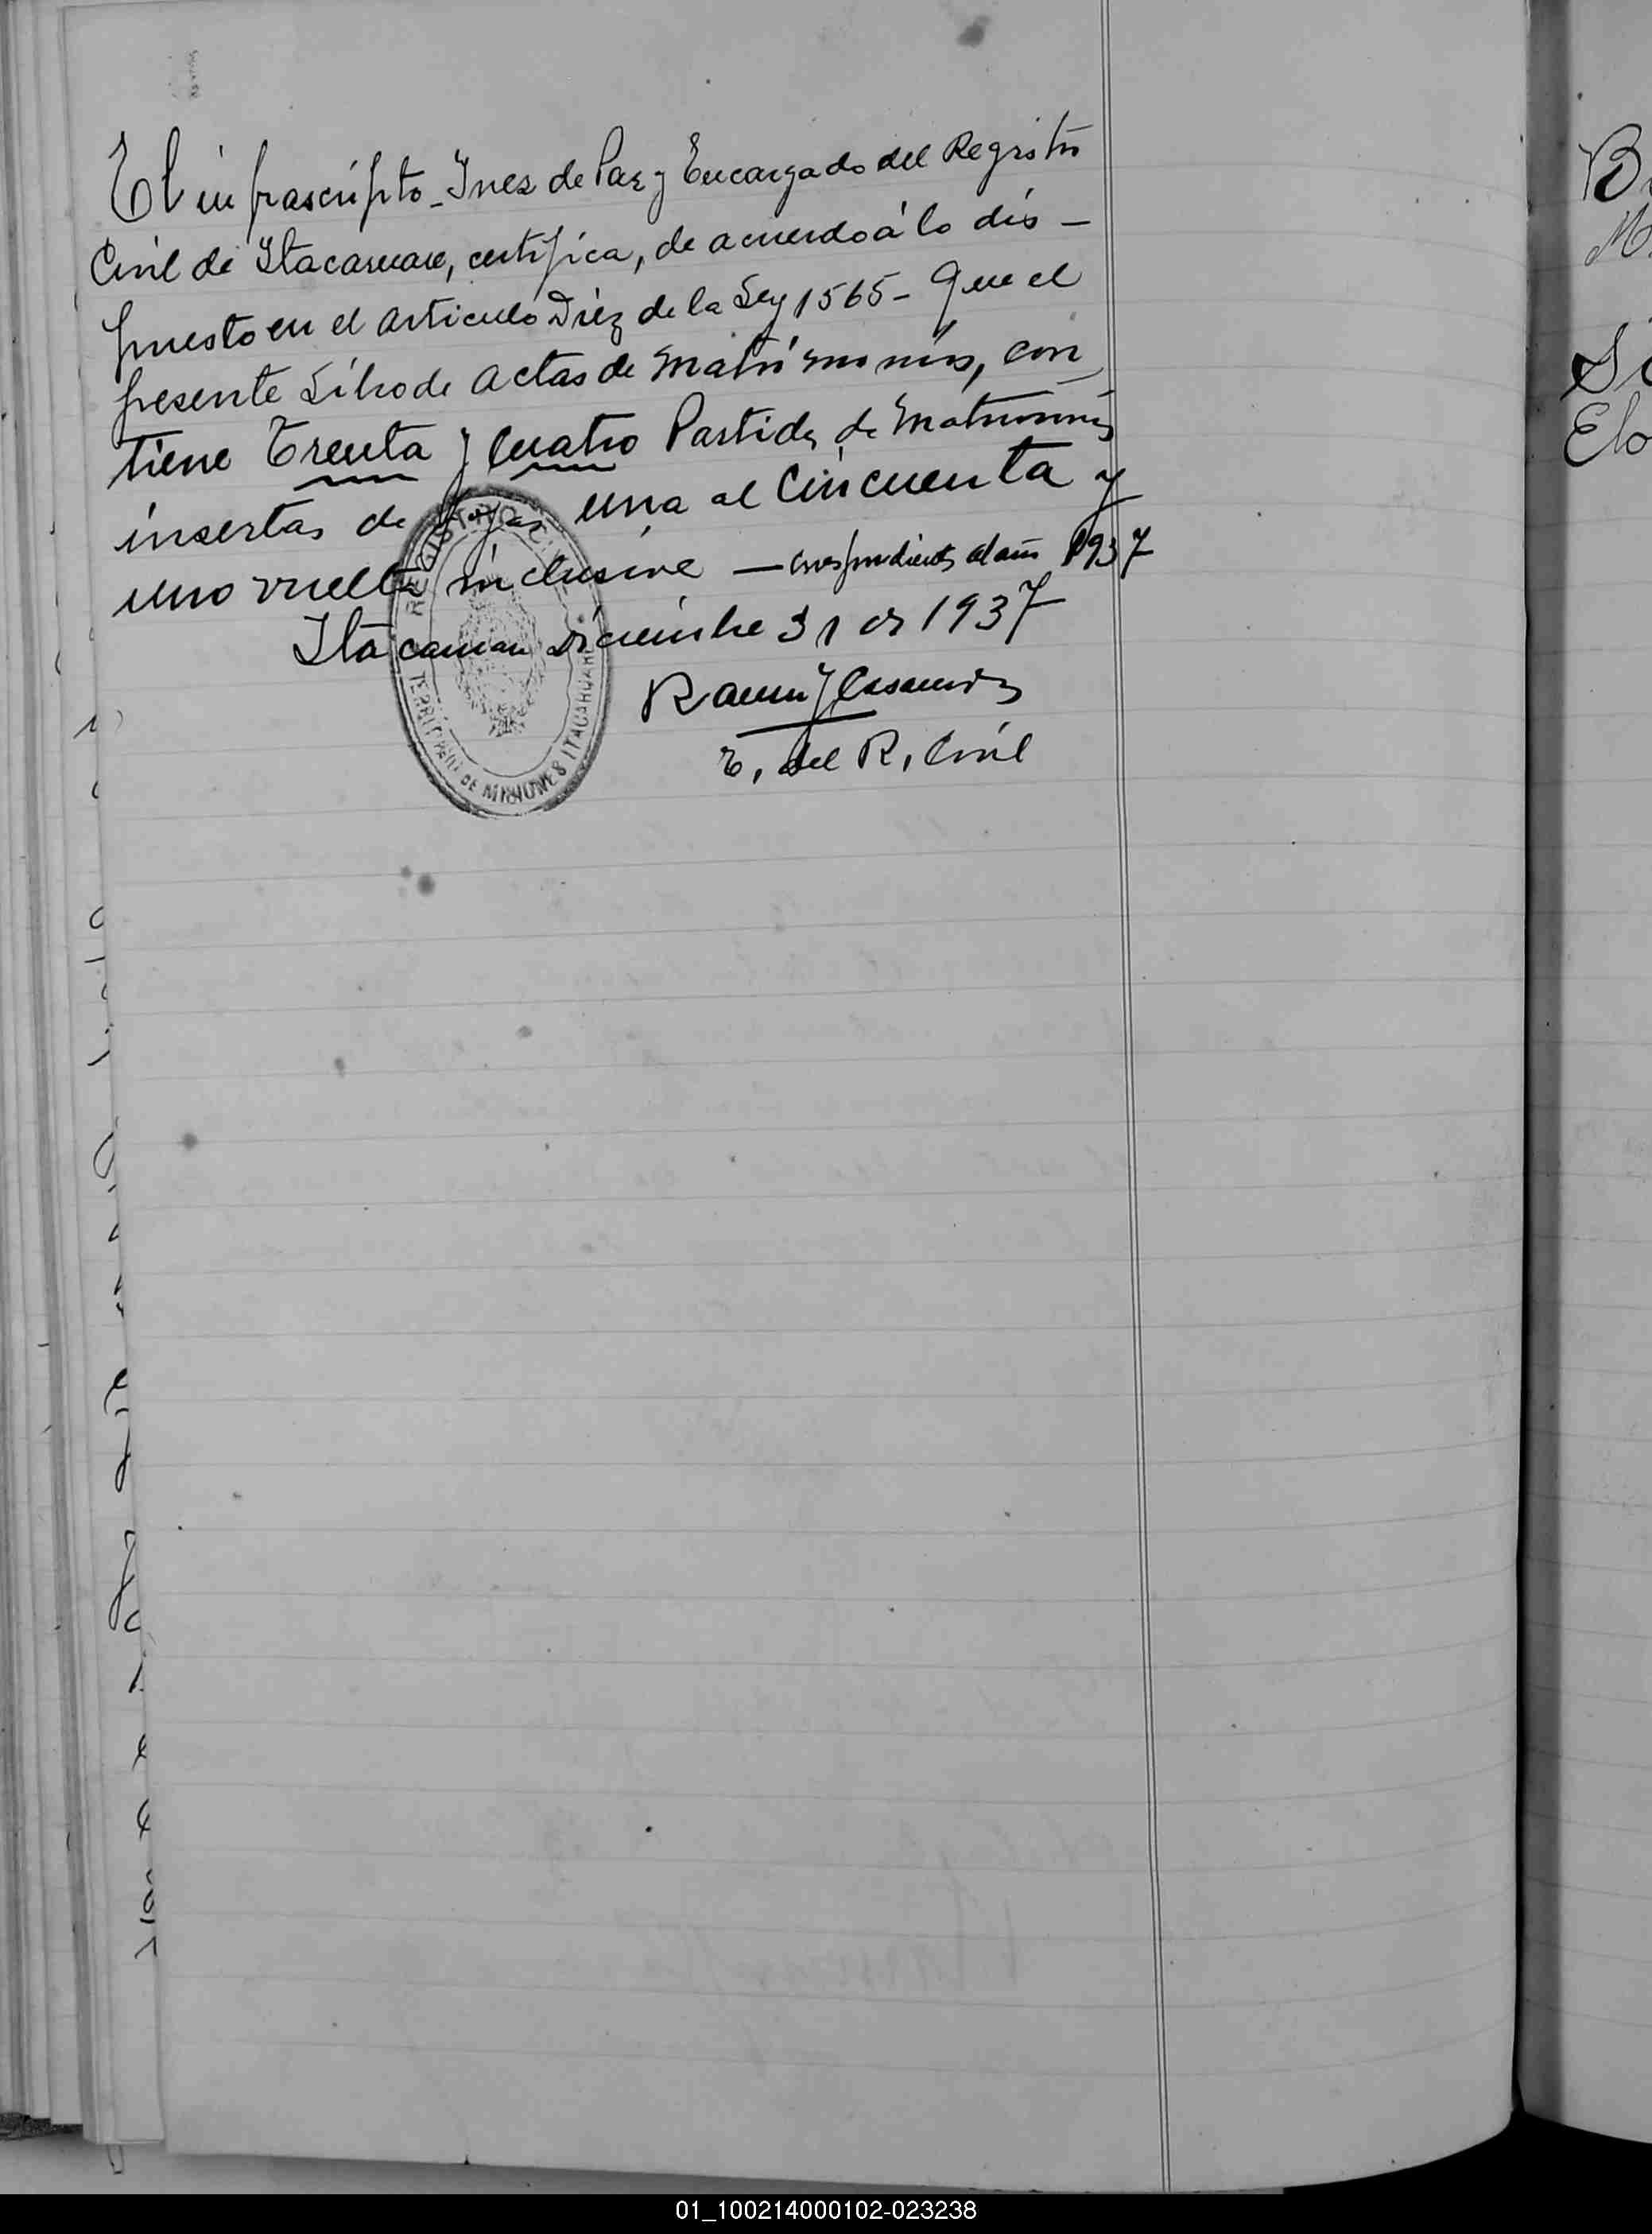 El infrascripto - Juez de Paz y Encargado del Registro
Civil de Itacaruare, certifica, de acuerdo á lo dis -
puesto en el articulo Diez de la Ley 1565 - Que el
presente Libro de actas de matrimonios, con
tiene Treinta y Cuatro Partidas de Matrimonios
insertas de fojas una al Cincuenta y
uno vuelta inclusive — correspondientes al año 1937
Itacaruare Diciembre 31 de 1937
Ramon J
E. del R. Civil
REGISTRO CIVIL
TERRITORIO DE MISIONES ITACARUARE
01_100214000102-023238